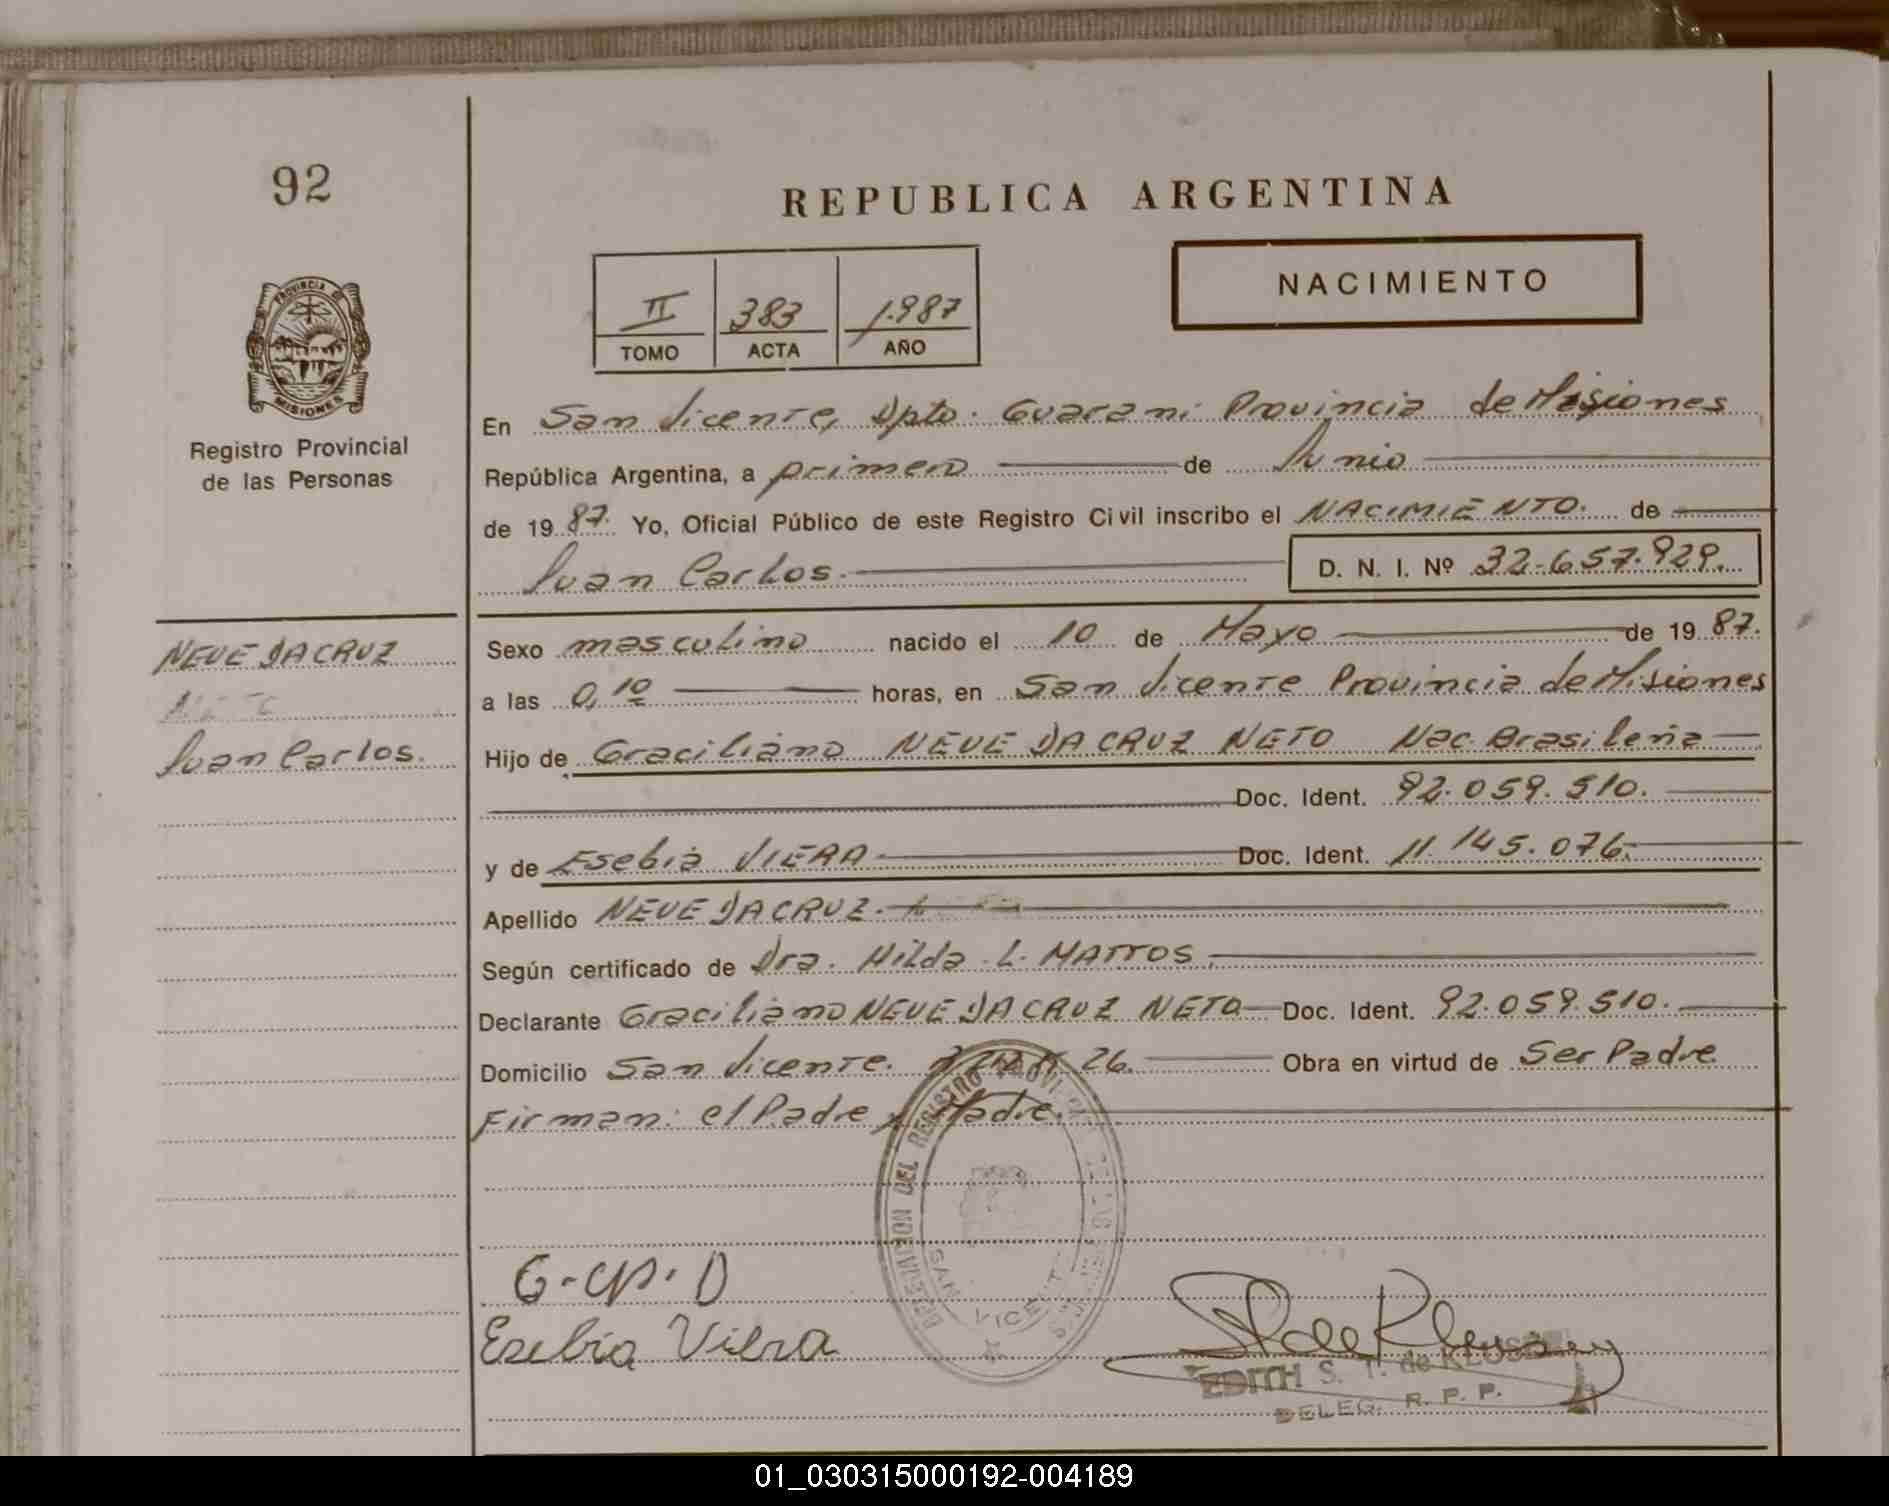 92
REPUBLICA ARGENTINA
PROVINCIA DE
MISIONES
Registro Provincial
de las Personas
II 383 1.987
TOMO ACTA AÑO
NACIMIENTO
En San Vicente, Dpto. Guarani Provincia de Misiones
República Argentina, a primero de Junio
de 19 87. Yo, Oficial Público de este Registro Civil inscribo el NACIMIENTO. de
Juan Carlos. D. N. I. Nº 32.657.929.
NEVE DA CRUZ
Juan Carlos.
Sexo masculino nacido el 10 de Mayo de 19 87.
a las 0,10 horas, en San Vicente Provincia de Misiones
Hijo de Graciliano NEVE DA CRUZ NETO Nac. Brasileña
Doc. Ident. 92.059.510.
y de Esebia VIERA Doc. Ident. 11.145.076.
Apellido NEVE DA CRUZ.
Según certificado de Dra. Hilda L. MATTOS.
Declarante Graciliano NEVE DA CRUZ NETO Doc. Ident. 92.059.510.
Domicilio San Vicente. 26. Obra en virtud de Ser Padre
Firman: el Padre y Madre.
DELEGACION DEL REGISTRO PROVINCIAL DE LAS
SAN VICENTE
G-CP.D
Esebia Viera
EDITH S. T. de
DELEG. R. P. P.
01_030315000192-004189